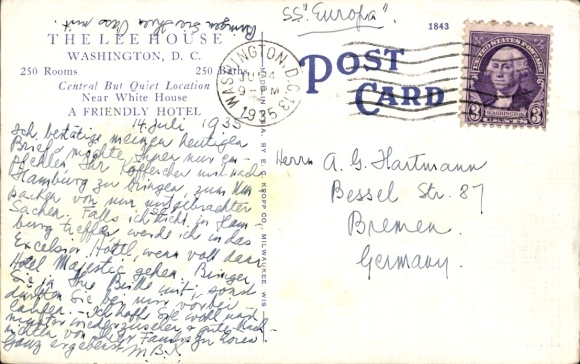 Bringen Sie Ihren Pass mit.
SS. "Europa"
THE LEE HOUSE
WASHINGTON, D. C.
250 Rooms 250 Baths
Central But Quiet Location
Near White House
A FRIENDLY HOTEL
1843
POST CARD
WASHINGTON, D.C. 13
1935
UNITED STATES POSTAGE
WASHINGTON
3 CENTS 3
MADE IN U.S.A. BY E. C. KROPP CO., MILWAUKEE, WIS.
14 Juli 1935
Ich bestätige meinen heutigen
Brief, möchte Ihnen nur
Ihr Köfferchen mit nach
Hamburg zu bringen, zum Um
packen von mir mitgebrachter
Sachen. Falls ich Sie nicht in Ham
burg treffe, werde ich in das
Excelsior Hotel, wenn voll dann
Hotel Majestic gehen. Bringen
Sie ja Ihre Bilder mit, sonst
dürften Sie bei mir vorbei
laufen. - Ich hoffe Sie wohl
wiederzusehen & gute Nach-
richten von Ihrer Family zu hören
Ganz ergebenst
M.B.K.
Herrn A. G. Hartmann
Bessel Str. 87
Bremen.
Germany.